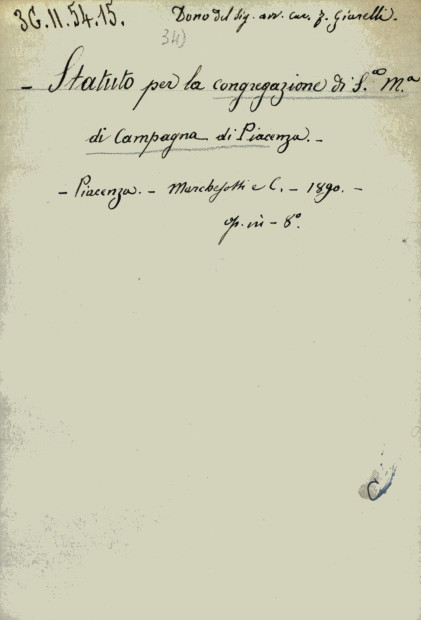 3G.II.54.15.
Dono del sig. avv. cav. f. Giarelli.
34)
- Statuto per la congregazione di S.ᵃ M.ᵃ
di Campagna di Piacenza. -
- Piacenza. - Marchesotti e C. - 1890. -
op. in - 8°.